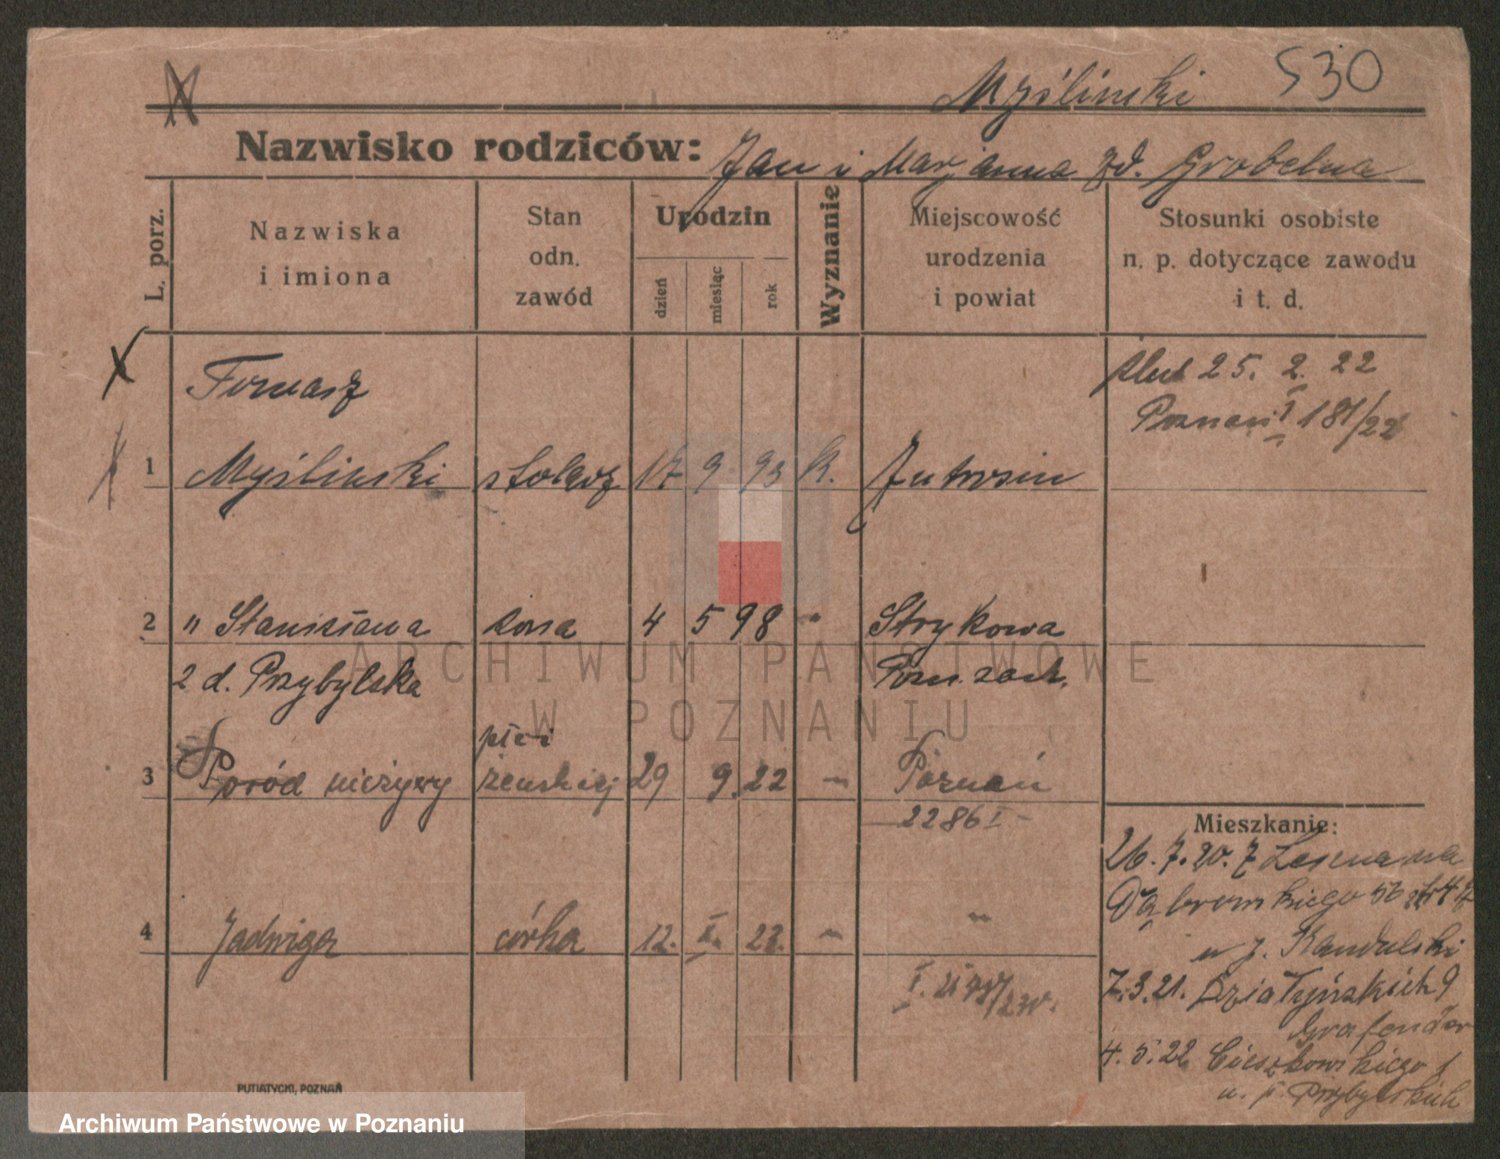 Myślinski 530
Nazwisko rodziców: Jan i Marjanna zd. Grobelna
L. porz.
Nazwiska
i imiona
Stan
odn.
zawód
Urodzin
dzień
miesiąc
rok
Wyznanie
Miejscowość
urodzenia
i powiat
Stosunki osobiste
n. p. dotyczące zawodu
i t. d.
Tomasz
ślub 25. 2. 22
Poznań I 181/22
1 Myślinski stolarz 17 9 93 k. Jutrosin
2 " Stanisława żona 4 5 98 " Strykowo
z d. Przybylska Pozn. zach.
płci
3 Poród nieżywy żeńskiej 29 9. 22 " Poznań
2286 I
4 Jadwiga córka 12. II. " "
Mieszkanie:
26. 7. 20. z
Dąbrowskiego 56
u J. Kandulski
7. 3. 21. Działyńskich 9
4. 5. 22 Cieszkowskiego
u. Przybylskich
PUTIATYCKI, POZNAŃ
ARCHIWUM PAŃSTWOWE
W POZNANIU
Archiwum Państwowe w Poznaniu